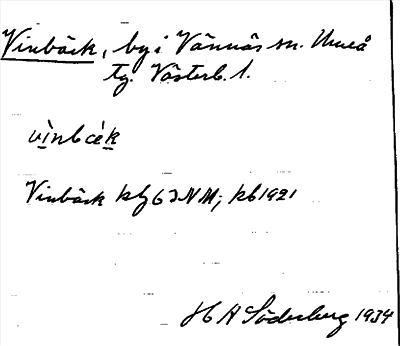 Vinbäck, by i Vännäs sn. Umeå
tg. Västerb. l.
vìnbćk
Vinbäck kbg 62NM; kb 1921
H A Söderberg 1934